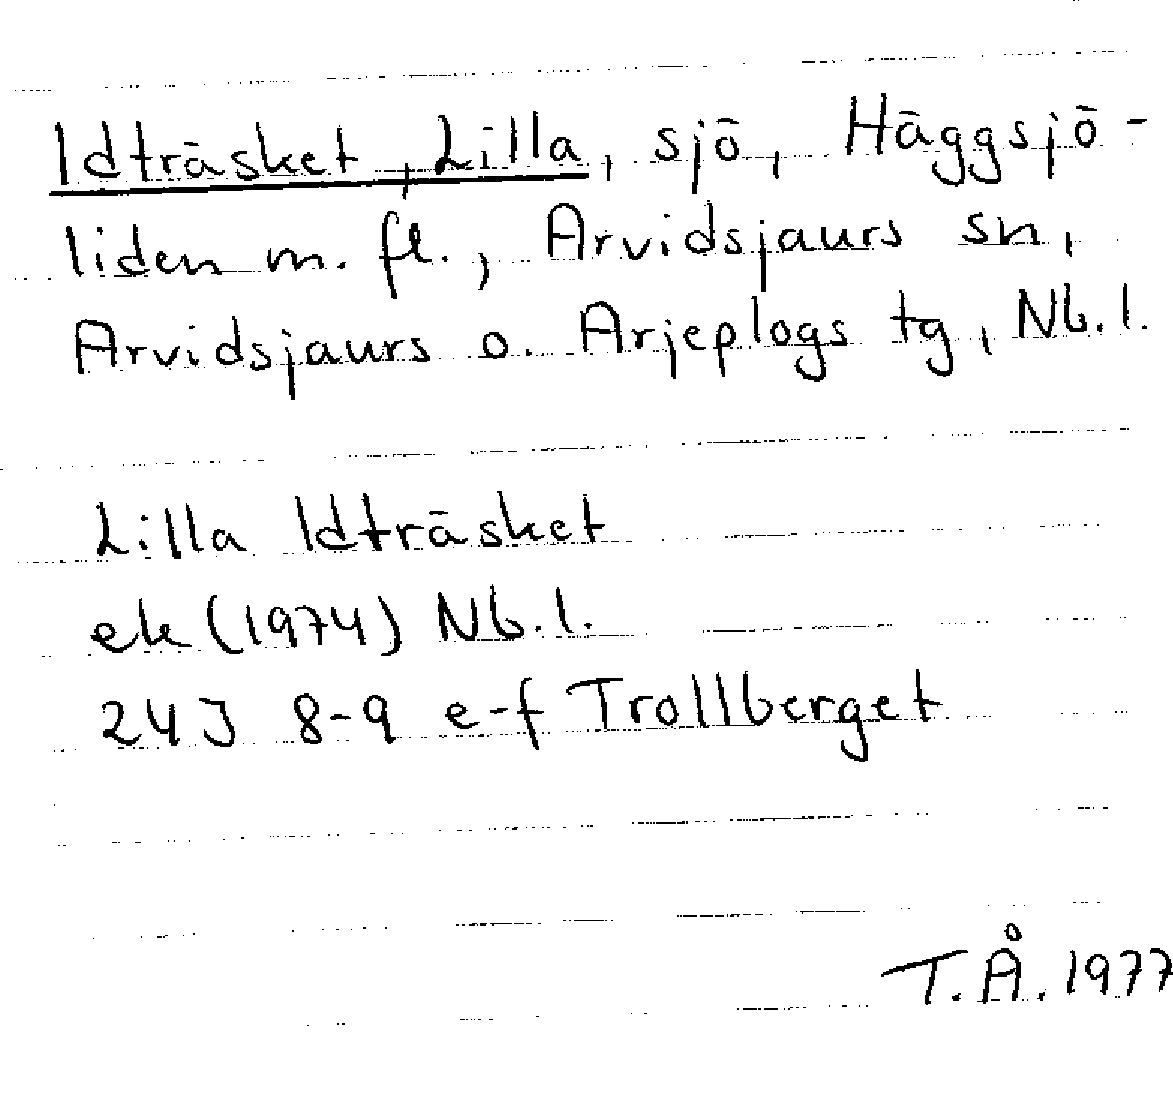 Idträsket, Lilla, sjö, Häggsjö-
liden m. fl., Arvidsjaurs sn,
Arvidsjaurs o. Arjeplogs tg, Nb. l.
Lilla Idträsket
ek (1974) Nb. l.
24J 8-9 e-f Trollberget
T. Å. 1977